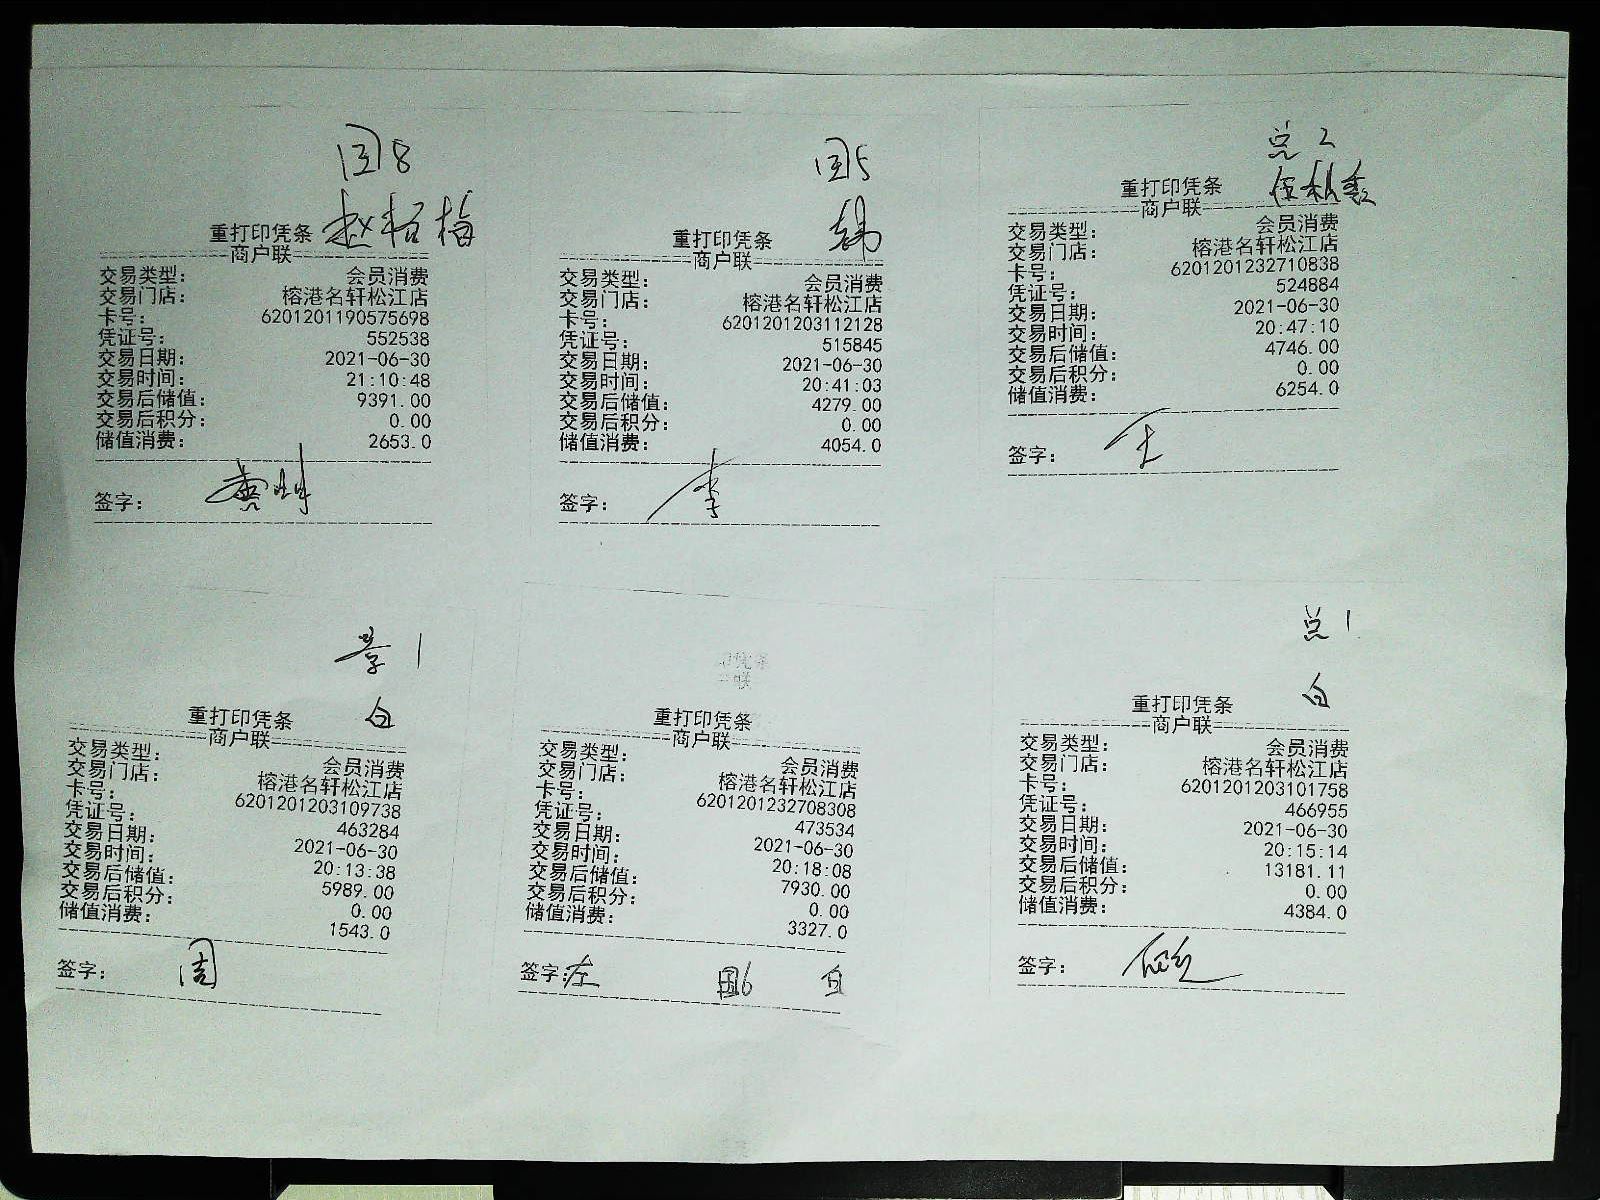 国8
赵
梅
重打印凭条
商户联
交易类型: 会员消费
交易门店: 榕港名轩松江店
卡号: 6201201190575698
凭证号: 552538
交易日期: 2021-06-30
交易时间: 21:10:48
交易后储值: 9391.00
交易后积分: 0.00
储值消费: 2653.0
签字:
国5
韩
重打印凭条
商户联
交易类型: 会员消费
交易门店: 榕港名轩松江店
卡号: 6201201203112128
凭证号: 515845
交易日期: 2021-06-30
交易时间: 20:41:03
交易后储值: 4279.00
交易后积分: 0.00
储值消费: 4054.0
签字: 李
总2
重打印凭条
商户联
交易类型: 会员消费
交易门店: 榕港名轩松江店
卡号: 6201201232710838
凭证号: 524884
交易日期: 2021-06-30
交易时间: 20:47:10
交易后储值: 4746.00
交易后积分: 0.00
储值消费: 6254.0
签字: 王
1
白
重打印凭条
商户联
交易类型: 会员消费
交易门店: 榕港名轩松江店
卡号: 6201201203109738
凭证号: 463284
交易日期: 2021-06-30
交易时间: 20:13:38
交易后储值: 5989.00
交易后积分: 0.00
储值消费: 1543.0
签字: 周
重打印凭条
商户联
交易类型: 会员消费
交易门店: 榕港名轩松江店
卡号: 6201201232708308
凭证号: 473534
交易日期: 2021-06-30
交易时间: 20:18:08
交易后储值: 7930.00
交易后积分: 0.00
储值消费: 3327.0
签字: 左 国6 白
总1
白
重打印凭条
商户联
交易类型: 会员消费
交易门店: 榕港名轩松江店
卡号: 6201201203101758
凭证号: 466955
交易日期: 2021-06-30
交易时间: 20:15:14
交易后储值: 13181.11
交易后积分: 0.00
储值消费: 4384.0
签字: